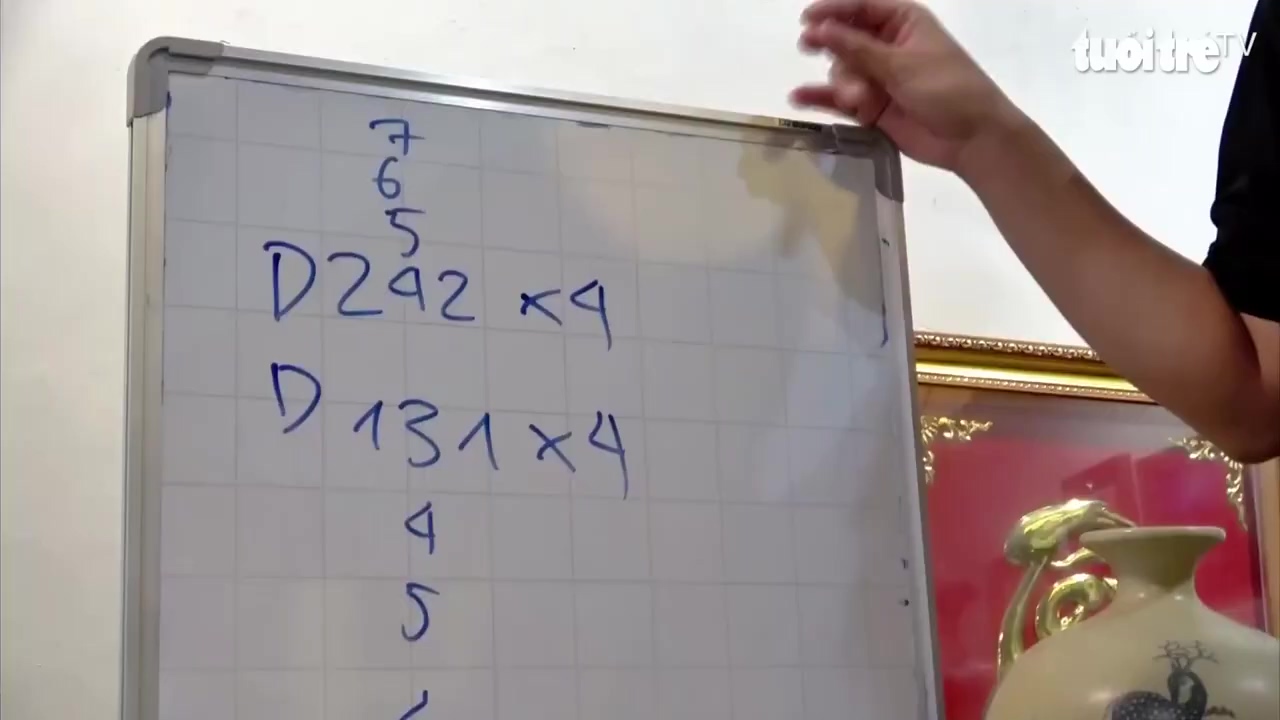 tuổi trẻ TV
7
6
5
D242 x4
D 131 x4
4
5